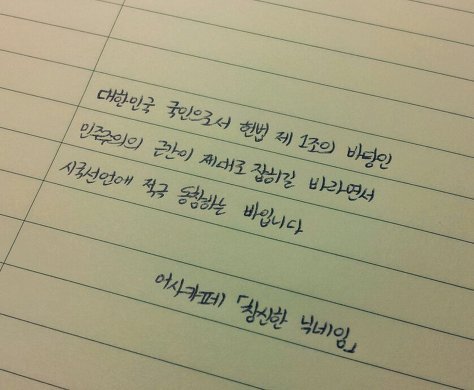 대한민국 국민으로서 헌법 제 1조의 바탕인
민주주의의 근간이 제대로 잡히길 바라면서
시국선언에 적극 동참하는 바입니다
어사카페 「참신한 닉네임」